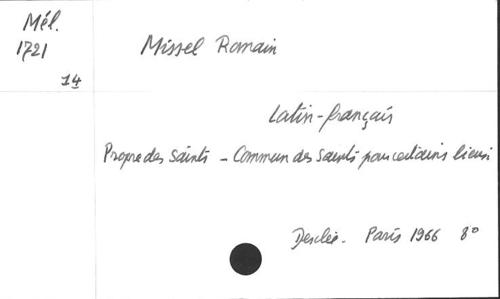 Mél.
1721
14
Missel Romain
Latin-français
Propre des Saints - Commun des Saints pour certains lieux
Desclée. Paris 1966 8°